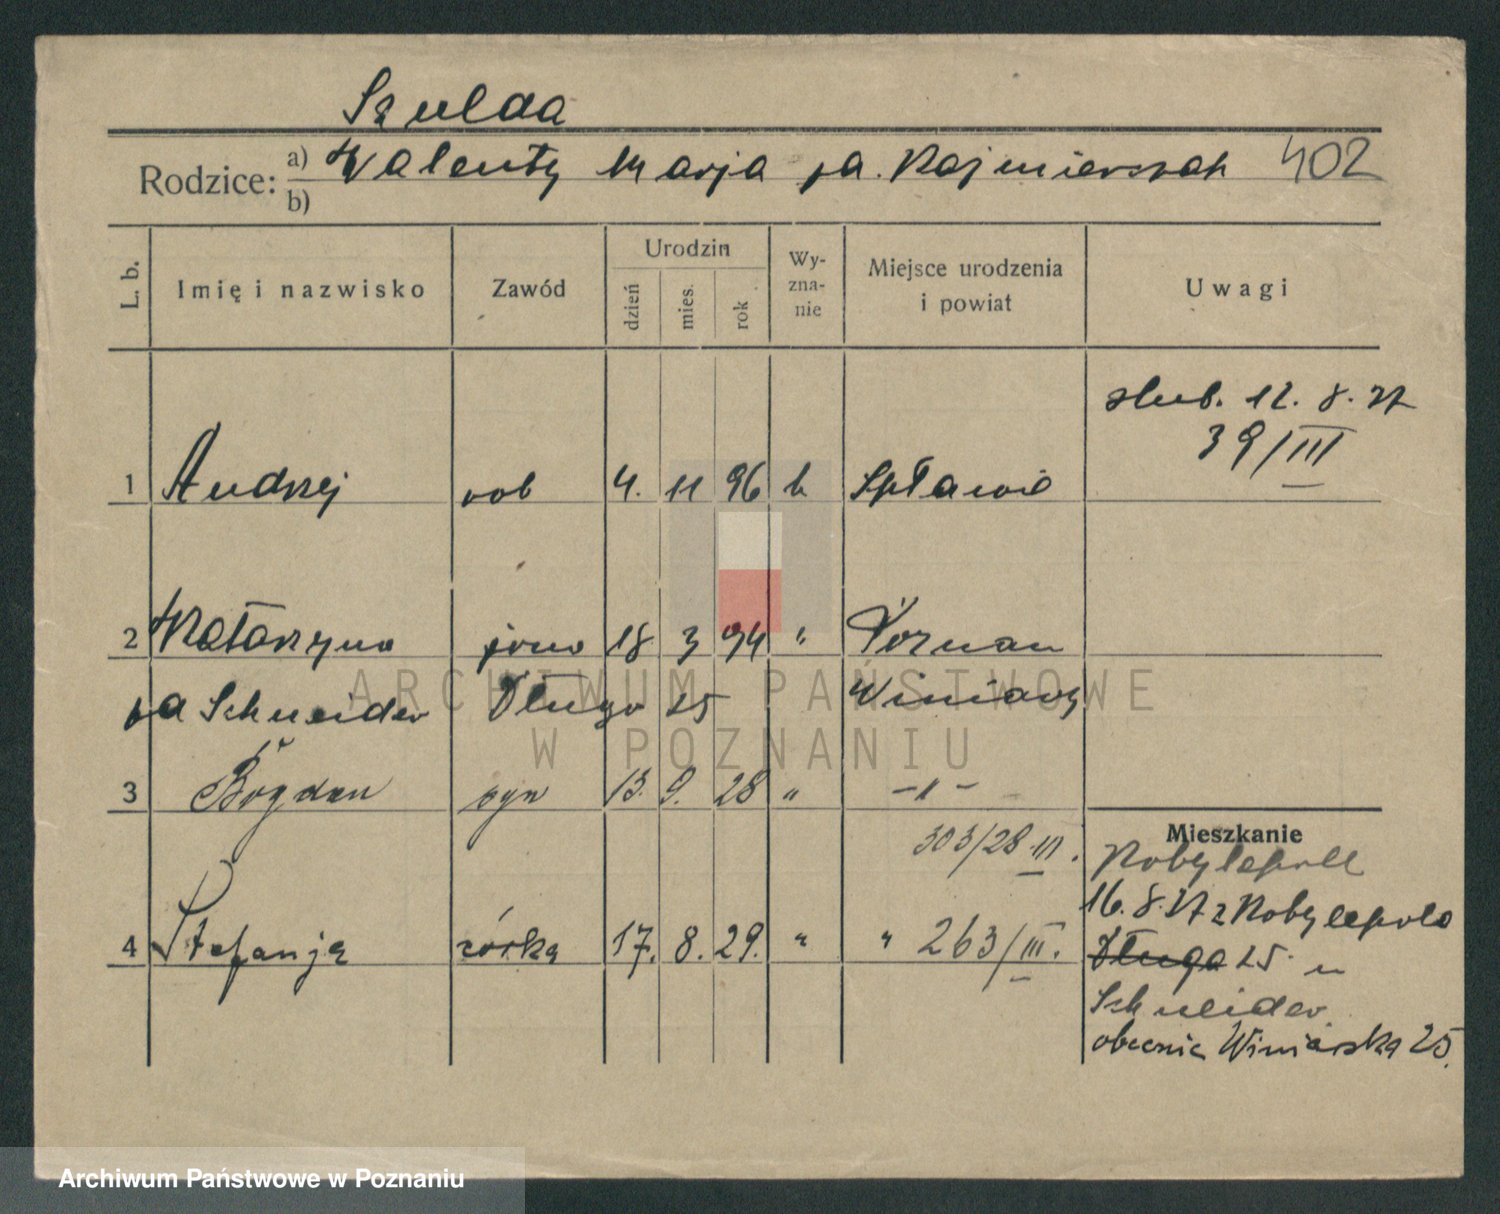 Szulda
Rodzice: a) Walenty Marja za. Kajmierszak 402
b)
L. b.
Imię i nazwisko
Zawód
Urodzin
dzień
mies.
rok
Wy-
zna-
nie
Miejsce urodzenia
i powiat
Uwagi
slub. 12. 8. 27
39/III
1 Andrzej rob 4. 11 96 k Spławie
2 Katarzyna żona 18 3 94 " Poznan
za Schneider Długa 25 Winiary
3 Bogdan syn 13. 9. 28 " -"-
303/28 III.
Mieszkanie
Kobylepole
16. 8. 27 z Kobylepola
4 Stefanja córka 17. 8. 29. " " 263/III.
Długa 25 u
Schneider
obecnie Winiarska 25.
ARCHIWUM PAŃSTWOWE
W POZNANIU
Archiwum Państwowe w Poznaniu